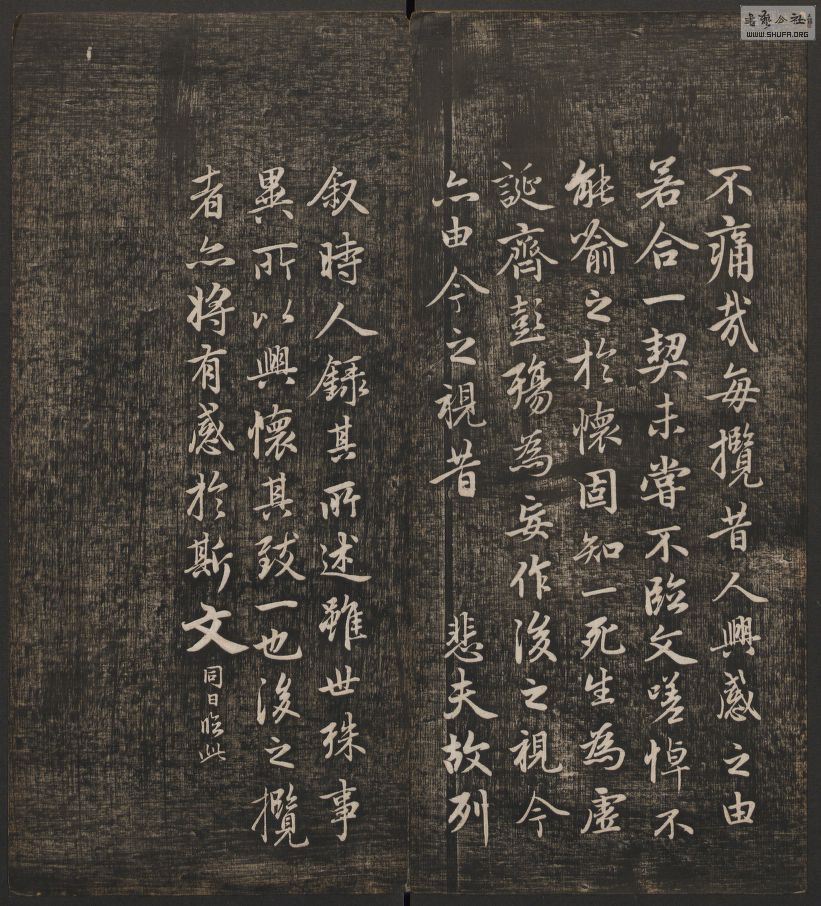 不痛哉每攬昔人興感之由
若合一契未嘗不臨文嗟悼不
能喻之於懷固知一死生為虛
誕齊彭殤為妄作後之視今
亦由今之視昔 悲夫故列
叙時人錄其所述雖世殊事
異所以興懷其致一也後之攬
者亦將有感於斯文 同日臨此
書藝公社
WWW.SHUFA.ORG